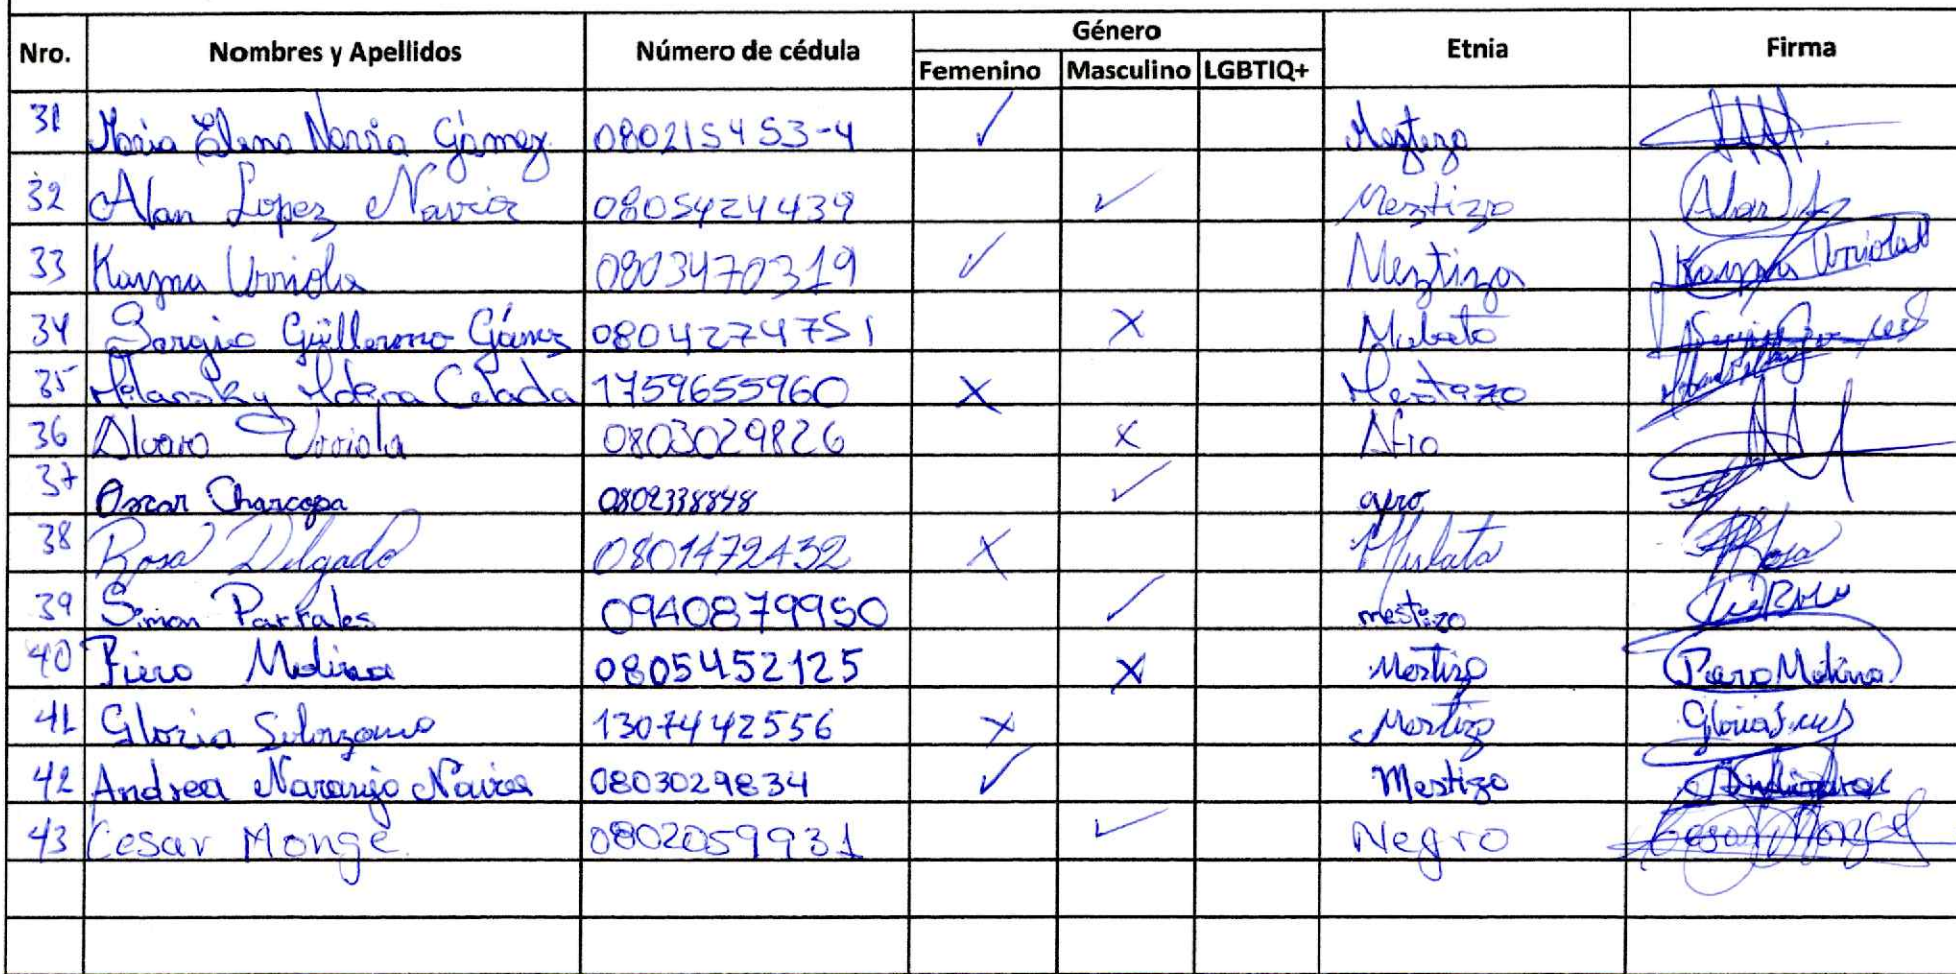 Género
Nro. Nombres y Apellidos Número de cédula Etnia Firma
Femenino Masculino LGBTIQ+
31 Maria Elena Navia Gámez 080215453-4 ✓ Mestizo
32 Alan Lopez Navia 0805424439 ✓ Meztizo Alan
33 Kayma Urriola 0803470319 ✓ Meztiza Kayma Urriola
34 Sergio Güillermo Gámez 0804274751 X Mulato
35 Celada 1759655960 X Mestizo
36 Alvaro Urriola 0803029826 X Afro
37 Oscar Charcopa 0802338848 ✓
38 Rosa Delgado 0801472432 X Mulata Rosa
39 Simon Parrales 0940879950 ✓ mestizo
40 Piero Molina 0805452125 X Mestizo Piero Molina
41 Gloria Solorzano 1307442556 X Mestizo Gloria
42 Andrea Naranjo Navia 0803029834 ✓ Mestizo
43 Cesar Monge 0802059931 ✓ Negro Cesar Monge